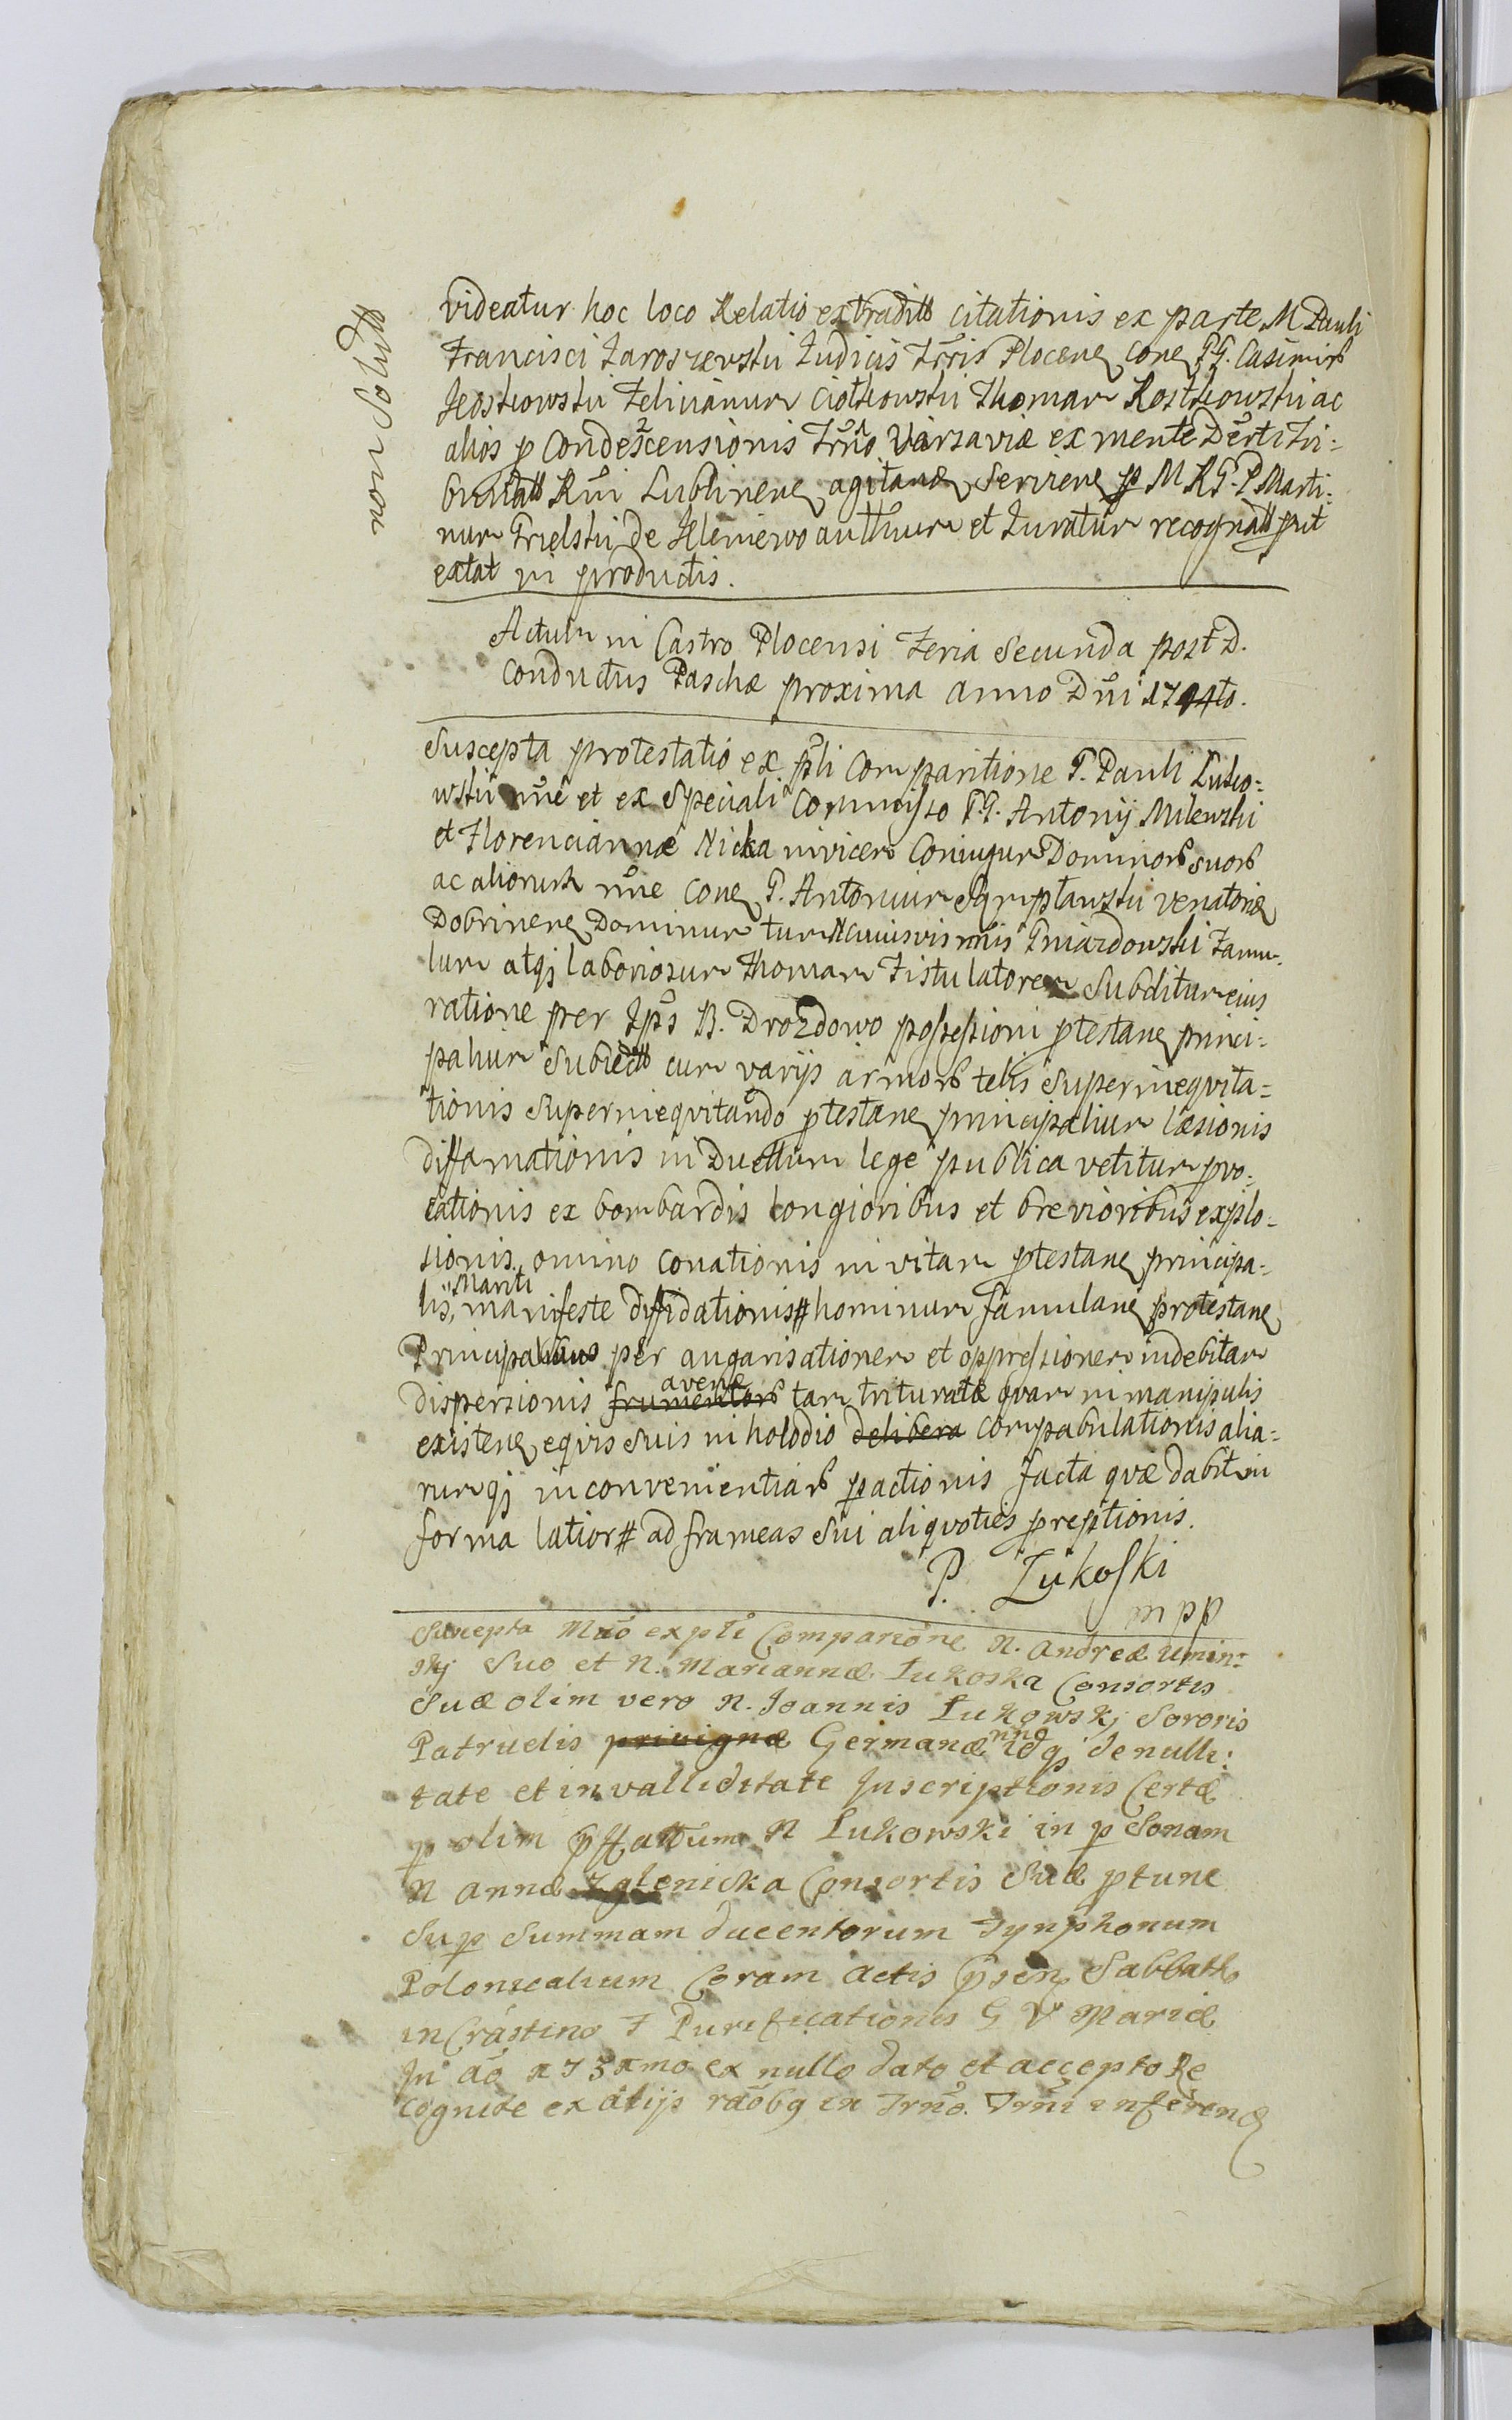 non Solut
videatur hoc loco Relatio extradit citationis ex parte M Pauli
Francisci Jaroszewski Judicis Trris Plocen Con GG. Casimir
Felicianum Ciołkowski Thomam Kostkowski ac
alios p Condescensionis Trno Varsaviæ ex mente Dcrti Tri=
bunal Rni Lublinen agitand Servien p M R G. P Marti:
num de author et Juratur recognat put
extat in productis.
Actum in Castro Plocensi Feria Secunda post D.
Conductus Paschæ proxima anno Dni 1744to.
Suscepta protestatio ex pli Comparitione G. Pauli Luko=
wski nne et ex Speciali Commisso G.G. Antonij Milewski
et Florenciannæ Nicka invicem Coniugum Dominor suor
ac aliorum nne Con G. Antonium venatorem
Dobrinen Dominum tum N cuiusvis nnis Gniazdowski famu=
lum atq laboriosum Thomam Fistulatorem Subditum eius
ratione per Ips B. Drozdowo possessioni ptestan princi=
palium Subiect cum varijs armor telis Superineqvita=
tionis Superineqvitando ptestan principalium læsionis
diffamationis in Duellum lege publica vetitum provo=
cationis ex bombardis longioribus et brevioribus explo=
sionis omino conationis in vitam ptestan principa=
lis, Mariti manifeste diffidationis # hominum famulan protestan
Principalium per angarisationem et oppressionem indebitam
dispersionis frumentor avenæ tam trituratæ qvam in manipulis
existen eqvis suis in holodio delibera compabulationis alia=
rumq inconvenientiar pactionis facta qvæ dabit in
forma latior # ad frameas sui aliqvoties preptionis.
P. Łukoski
mpp
Suscepta Mno ex pli Comparione N. Andreæ Umin=
skj Suo et N. Mariannæ Łukoska Consortis
Suæ olim vero N. Joannis Łukowskj Sororis
Patruelis privignæ Germanæ nne idq de nulli=
tate et invalliditate Inscriptionis Certæ
p olim pffattum N Łukowski in p Sonam
N Annæ Zglenicka Consortis Suæ ptunc
Sup Summam ducentorum Tynphonum
Polonicalium Coram actis psen Sabbatho
in Crastino F Purificationis B V Mariæ
In ao 1731mo ex nullo dato et accepto Re
cognitæ ex alijs raobq in Trno. Trni inferend